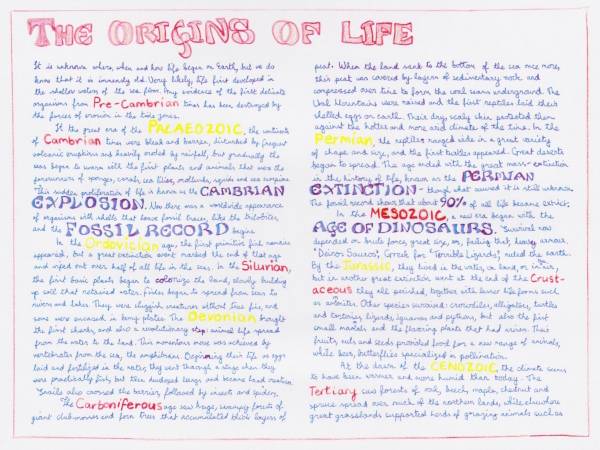 THE ORIGINS OF LIFE
It is unknown where, when and how life began on Earth, but we do
know that it is immensely old. Very likely, life first developed in
the shallow waters of the sea floor. Any evidence of the first delicate
organisms from Pre-Cambrian times has been destroyed by
the forces of erosion in the tidal zones.
In the great era of the PALAEOZOIC, the continents
of Cambrian times were bleak and barren, disturbed by frequent
volcanic eruptions and heavily eroded by rainfall, but gradually the
seas began to swarm with the first plants and animals that were the
forerunners of sponges, corals, sea lilies, molluscs, squids and sea scorpions.
This sudden proliferation of life is known as the CAMBRIAN
EXPLOSION. Now there was a worldwide appearance
of organisms with shells that leave fossil traces, like the trilobites,
and the FOSSIL RECORD begins.
In the Ordovician age, the first primitive fish
appeared, but a great extinction event marked the end of that age
and wiped out over half of all life in the seas. In the Silurian,
the first land plants began to colonize the land, slowly building
up soil that retained water; fishes began to spread from seas to
rivers and lakes. They were sluggish creatures without fins, and
some were encased in bony plates. The Devonian brought
the first sharks, and also a revolutionary step: animal life spread
from the water to the land. This momentous move was achieved by
vertebrates from the sea, the amphibians. Beginning their life as eggs
laid and fertilized in the water, they went through a stage when they
were practically fish, but then developed lungs and became land creatures.
Snails also crossed the barrier, followed by insects and spiders.
The Carboniferous age saw huge, swampy forests of
giant club-mosses and fern trees that accumulated thick layers of
peat. When the land sank to the bottom of the sea once more,
this peat was covered by layers of sedimentary rock, and
compressed over time to form the coal seams underground. The
Ural Mountains were raised and the first reptiles laid their
shelled eggs on earth. Their dry, scaly skin protected them
against the hotter and more arid climate of the time. In the
Permian, the reptiles ranged wide in a great variety
of shape and size, and the first turtles appeared. Great deserts
began to spread. The age ended with the great mass-extinction
in the history of life, known as the PERMIAN
EXTINCTION - though what caused it is still unknown.
The fossil record shows that about 90% of all life became extinct.
In the MESOZOIC, a new era began with the
AGE OF DINOSAURS. Survival now
depended on brute force, great size, or, failing that, heavy armour.
"Deinos Sauros", Greek for "Terrible Lizards", ruled the earth.
By the Jurassic, they lived in the water, on land, or in air,
but in another great extinction event at the end of the Crust-
aceous they all perished, together with lower life forms such
as ammonites. Other species survived: crocodiles, alligators, turtles
and tortoises, lizards, iguanas and pythons, but also the first
small mammals and the flowering plants that had arisen. Their
fruits, nuts and seeds provided food for a new range of animals,
while bees, butterflies specialized in pollination.
At the dawn of the CENOZOIC, the climate seems
to have been warmer and more humid than today. The
Tertiary saw forests of oak, beech, maple, chestnut and
spruce spread over much of the northern lands, while elsewhere
great grasslands supported herds of grazing animals such as